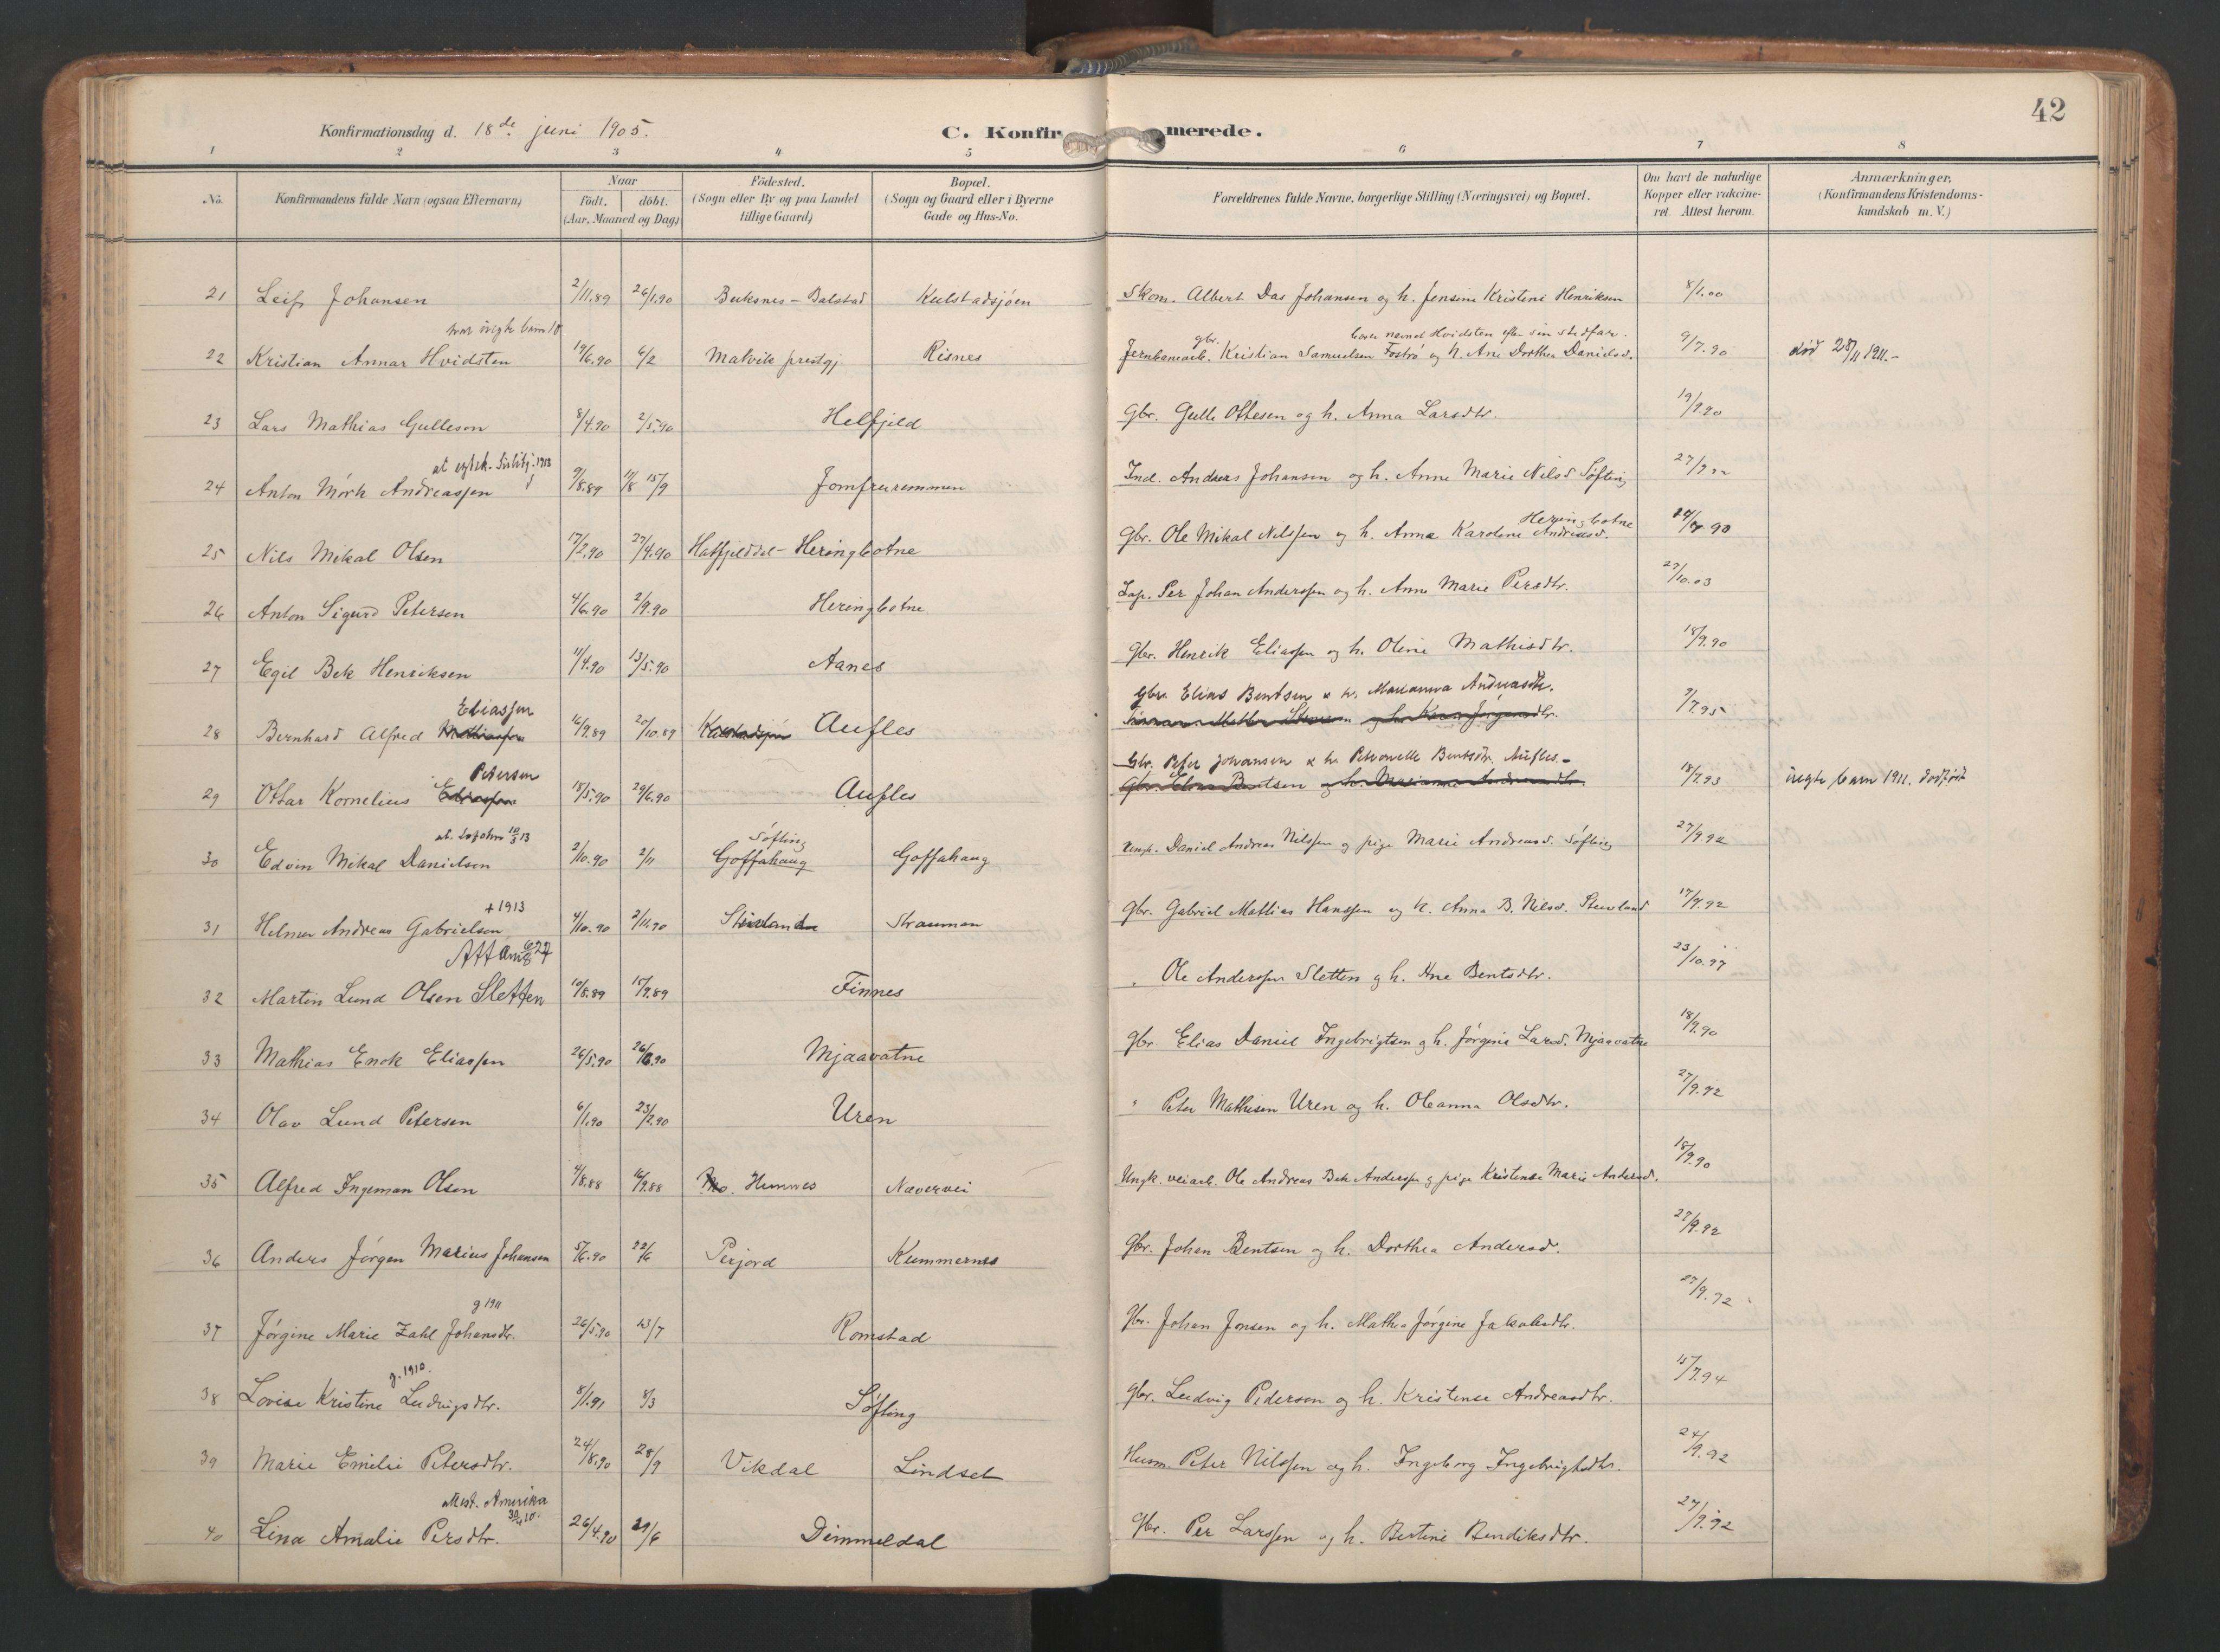 42
Konfirmationsdag d. 18de juni 1905.
C. Konfirmerede.
1 2 3 4 5 6 7 8
No.
Konfirmandens fulde Navn (ogsaa Efternavn)
Naar
födt. döbt.
(Aar, Maaned og Dag)
Födested.
(Sogn eller By og paa Landet
tillige Gaard)
Bopæl.
(Sogn og Gaard eller i Byerne
Gade og Hus-No.
Forældrenes fulde Navne, borgerlige Stilling (Næringsvei) og Bopæl.
Om havt de naturlige
Kopper eller vakcine-
ret. Attest herom.
Anmærkninger,
(Konfirmandens Kristendoms-
kundskab m. V.)
21 Leif Johansen 2/11.89 26/1.90 Buksnes - Balstad Kulstadsjøen Skom. Albert Das Johansen og h. Jensine Kristine Henriksen 8/1.00
har uægte barn 10
gbr. bærer navnet Hvidsten efter sin stedfar.
22 Kristian Annar Hvidsten 19/6.90 6/2 Matvik prestgj. Risnes Jernbanearb. Kristian Samuelsen Fostrø og h. Ane Dorthea Danielsd. 9/7.90 død 28/11 1911.-
23 Lars Mathias Gulleson 8/4.90 2/5.90 Helfjeld Gbr. Gulle Ottesen og h. Anna Larsdtr. 19/9.90
at egtsk. 1913
24 Anton Mörk Andreassen 9/8.89 15/9 Jomfruremmen Ind. Andreas Johansen og h. Anne Marie Nilsd Søfting 27/9
25 Nils Mikal Olsen 17/2.90 27/4.90 Hatfjelddal - Heringbotne Gbr. Ole Mikal Nilssen og h. Anna Karoline Andreasd. Heringbotne 90
26 Anton Sigurd Petersen 4/6.90 2/9.90 Heringbotne Lap. Per Johan Anderssen og h. Anne Marie Persdtr. 27/10.03
27 Egil Bek Henriksen 11/4.90 13/5.90 Aanes Gbr. Henrik Eliassen og h. Oline Mathisdtr. 18/9.90
Eliassen
Gbr. Elias Bentsen & h. Marianna Andreasdtr.
28 Bernhard Alfred Mathiassen 16/9.89 20/10.89 Kulstadsjøen Aufles 9/7.95
Petersen
Gbr. Peter Johansen & h. Petronelle Bentsdtr. Aufles.-
29 Ottar Kornelius Eliassen 18/5.90 29/6.90 Aufles Gbr. Elias Bentsen og h. Marianne Andreasdtr. 18/7.93 uægte barn 1911. dødfødt
Søfting
30 Edvin Mikal Danielsen 2/10.90 2/11 Goffahaug Goffahaug Ungk. Daniel Andreas Nilssen og pige Marie Andreasd. Søfting 27/9.92
+ 1913
31 Helmer Andreas Gabrielsen 4/10.90 2/11.90 Strauman Gbr. Gabriel Mathias Hanssen og h. Anna B. Nilsd. 17/9.92
32 Martin Lund Olsen Sletten 10/8.89 15/9.89 Finnes Ole Anderssen Sletten og h. Ane Bentsdtr. 23/10.97
33 Mathias Enok Eliassen 26/5.90 26/6.90 Mjaavatne Gbr. Elias Daniel Ingebrigtsen og h. Jørgine Larsd. Mjaavatne 18/9.90
34 Olav Lund Petersen 6/1.90 23/2.90 Uren " Peter Mathisen Uren og h. Oleanna Olsdtr. 27/9.92
35 Alfred Ingeman Olsen 4/8.88 16/9.88 Mo. Hemnes Navervei Ungk. veiarb. Ole Andreas Bek Anderssen og pige Kristense Marie Andersd. 18/9.90
36 Anders Jørgen Marius Johansen 5/6.90 22/6 Perjord Kummernes Gbr. Johan Bentsen og h. Dorthea Andersd. 27/9.92
g 1911
37 Jørgine Marie Zahl Johansdtr. 26/5.90 13/7 Romstad Gbr. Johan Jonsen og h. Mathea Jørgine Jakobsdtr. 27/9.92
g. 1910.
38 Lovise Kristine Ludvigsdtr. 8/1.91 8/3 Søfting Gbr. Ludvig Pedersen og h. Kristense Andreasdtr. 15/7.94
39 Marie Emilie Petersdtr. 24/8.90 28/9 Vikdal Lindset Husm. Peter Nilssen og h. Ingeborg Ingebrigtsdtr. 24/9.92
attest. Amerika
40 Lina Amalie Persdtr. 26/4.90 29/6 Dimmeldal Gbr. Per Larssen og h. Bertine Bendiksdtr. 27/9.92